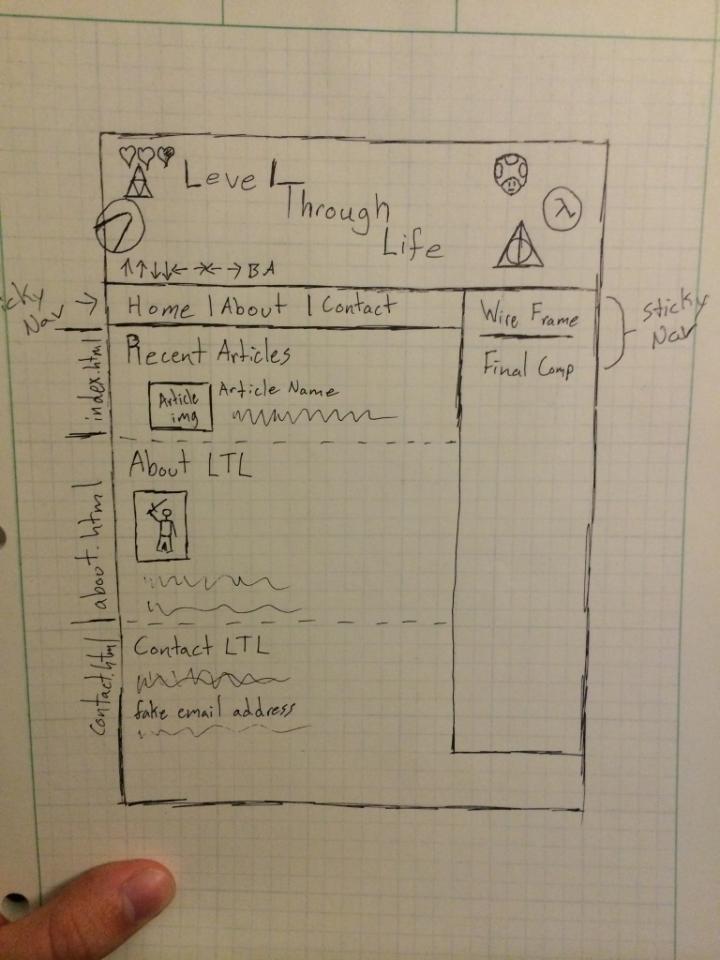 Level
Through
Life
λ
↑↑↓↓←→←→BA
Home | About | Contact
Nav
Wire Frame
Final Comp
Sticky
Nav
index.html
Recent Articles
Article
img
Article Name
about.html
About LTL
contact.html
Contact LTL
fake email address